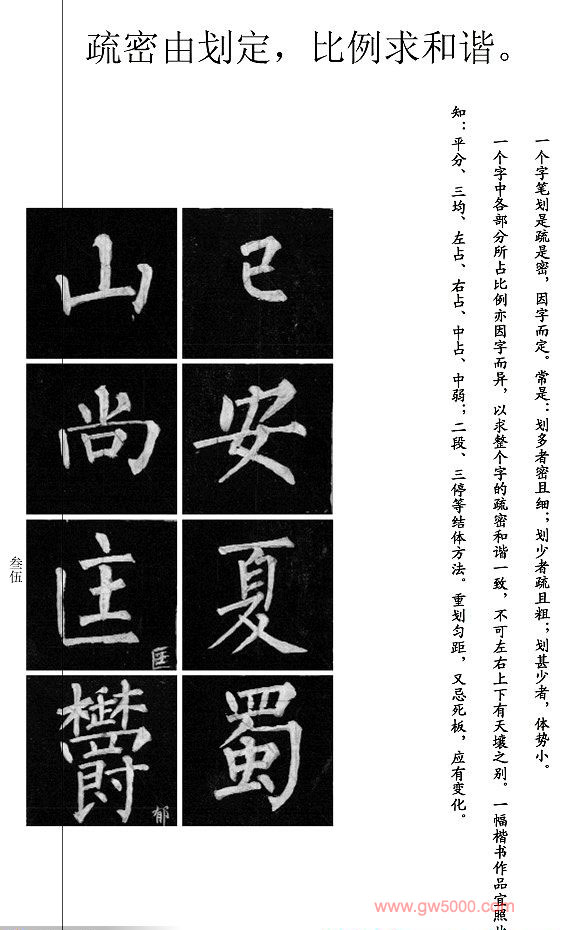 疏密由划定，比例求和谐。
一个字笔划是疏是密，因字而定。常是：划多者密且细；划少者疏且粗；划甚少者，体势小。
一个字中各部分所占比例亦因字而异，以求整个字的疏密和谐一致，不可左右上下有天壤之别。一幅楷书作品宜照
知：平分、三均、左占、右占、中占、中弱；二段、三停等结体方法。重划匀距，又忌死板，应有变化。
已
安
夏
蜀
山
尚
匡
匡
鬱
郁
叁伍
www.gw5000.com